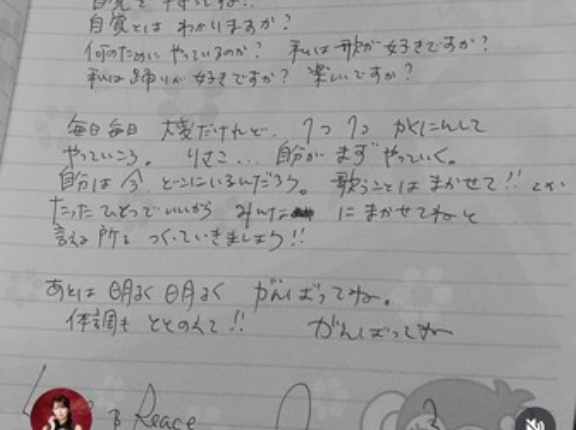 自覚を持ってね!!
自覚とは わかりますか?
何のために やっているのか? 私は歌が好きですか?
私は踊りが好きですか? 楽しいですか?
毎日毎日 大変だけれど、1つ1つ かくにんして
やっていこう。 りさこ... 自分が まず やっていく。
自分は今、どこにいるんだろう。 歌うことは まかせて!! とか
たった ひとつで いいから みんな にまかせてねと
言える所を つくっていきましょう!!
あとは 明るく 明るく がんばってね。
体調も ととのえて!! がんばってね
B Peace